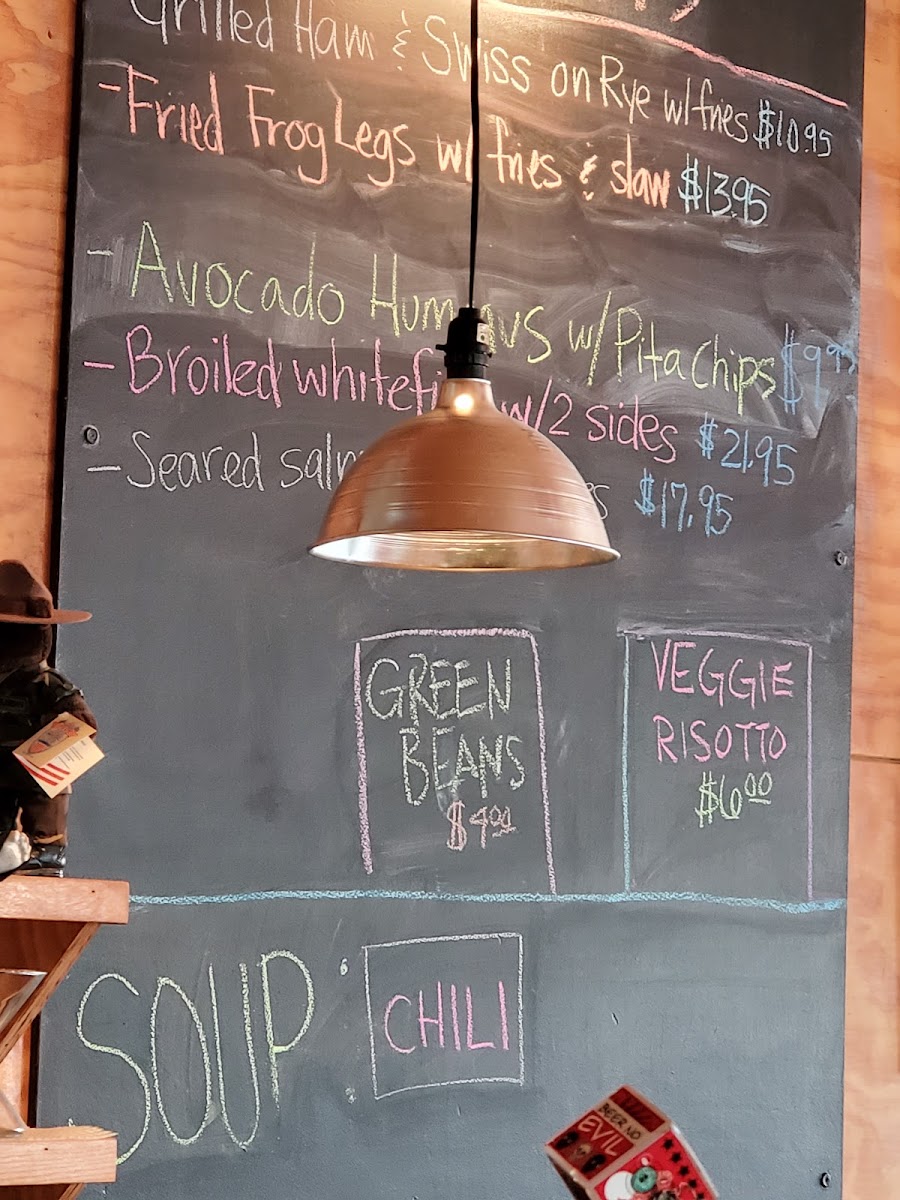 Grilled Ham & Swiss on Rye w/ fries $10.95
- Fried Frog Legs w/ fries & slaw $13.95
- Avocado Hummus w/ Pita Chips $9.95
- Broiled whitefi w/ 2 sides $21.95
- Seared salm es $17.95
GREEN
BEANS
$4.00
VEGGIE
RISOTTO
$6.00
SOUP : CHILI
BEER NO
EVIL